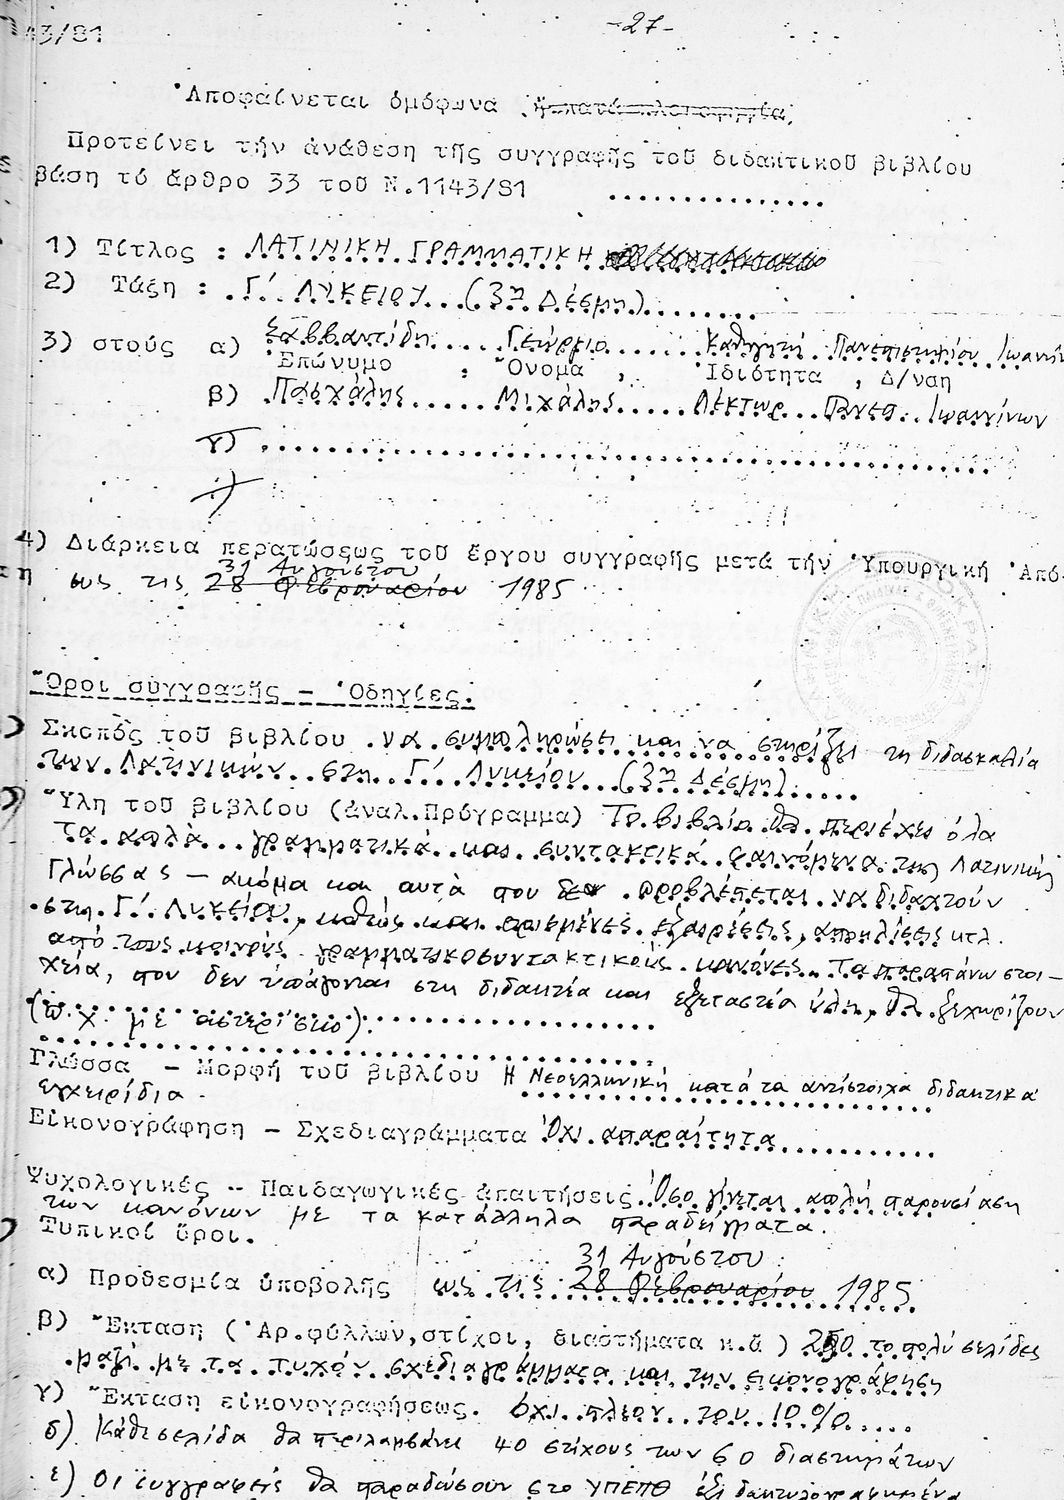 43/81
-27-
Ἀποφαίνεται ὁμόφωνα ἤ κατά πλειοψηφία
Προτείνει τήν ἀνάθεση τῆς συγγραφῆς τοῦ διδακτικοῦ βιβλίου
βάση τό ἄρθρο 33 τοῦ Ν.1143/81 ...............
1) Τίτλος : ΛΑΤΙΝΙΚΗ ΓΡΑΜΜΑΤΙΚΗ
2) Τάξη : Γ' ΛΥΚΕΙΟΥ (3η Δέσμη)
3) στούς α) Σαββαντίδη Γεώργιο Καθηγητή Πανεπιστημίου
Ἐπώνυμο , Ὄνομα , Ἰδιότητα , Δ/νση
β) Πασχάλης Μιχάλης Λέκτωρ Πανεπ. Ιωαννίνων
γ)
4) Διάρκεια περατώσεως τοῦ ἔργου συγγραφῆς μετά τήν Ὑπουργική Ἀπό-
31 Αυγούστου
ως τις 28 Φεβρουαρίου 1985
Ὅροι συγγραφῆς - Ὁδηγίες.
Σκοπός τοῦ βιβλίου να συμπληρώσει και να στηρίξει τη διδασκαλία
των Λατινικών στη Γ' Λυκείου (3η Δέσμη)
Ὕλη τοῦ βιβλίου (ἀναλ.Πρόγραμμα) Το βιβλίο θα περιέχει όλα
τα απλά γραμματικά και συντακτικά φαινόμενα της Λατινικής
Γλώσσας - ακόμα και αυτά που δεν προβλέπεται να διδαχτούν
στη Γ' Λυκείου, καθώς και ορισμένες εξαιρέσεις, αποκλίσεις κτλ.
από τους κοινούς γραμματικοσυντακτικούς κανόνες. Τα παραπάνω στοι-
χεία, που δεν υπάγονται στη διδακτέα και εξεταστέα ύλη, θα ξεχωρίζουν
(π.χ. με αστερίσκο).
Γλῶσσα - Μορφή τοῦ βιβλίου Η Νεοελληνική κατά τα αντίστοιχα διδακτικά
εγχειρίδια.
Εἰκονογράφηση - Σχεδιαγράμματα Όχι απαραίτητα
Ψυχολογικές - Παιδαγωγικές ἀπαιτήσεις Όσο γίνεται απλή παρουσίαση
των κανόνων με τα κατάλληλα παραδείγματα.
Τυπικοί ὅροι.
31 Αυγούστου
α) Προθεσμία ὑποβολῆς ως τις 28 Φεβρουαρίου 1985
β) Ἔκταση (Ἀρ.φύλλων,στίχοι, διαστήματα κ.ἄ ) το πολύ σελίδες
μαζί με τα τυχόν σχεδιαγράμματα και την εικονογράφηση
γ) Ἔκταση εἰκονογραφήσεως. όχι πλέον του 10%
δ) Κάθε σελίδα θα περιλαμβάνει 40 στίχους των 60 διαστημάτων
ε) Οι συγγραφείς θα παραδώσουν στο ΥΠΕΠΘ έξι δακτυλογραφημένα